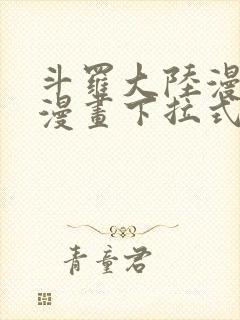 斗羅大陸漫
漫畫下拉式
青童君